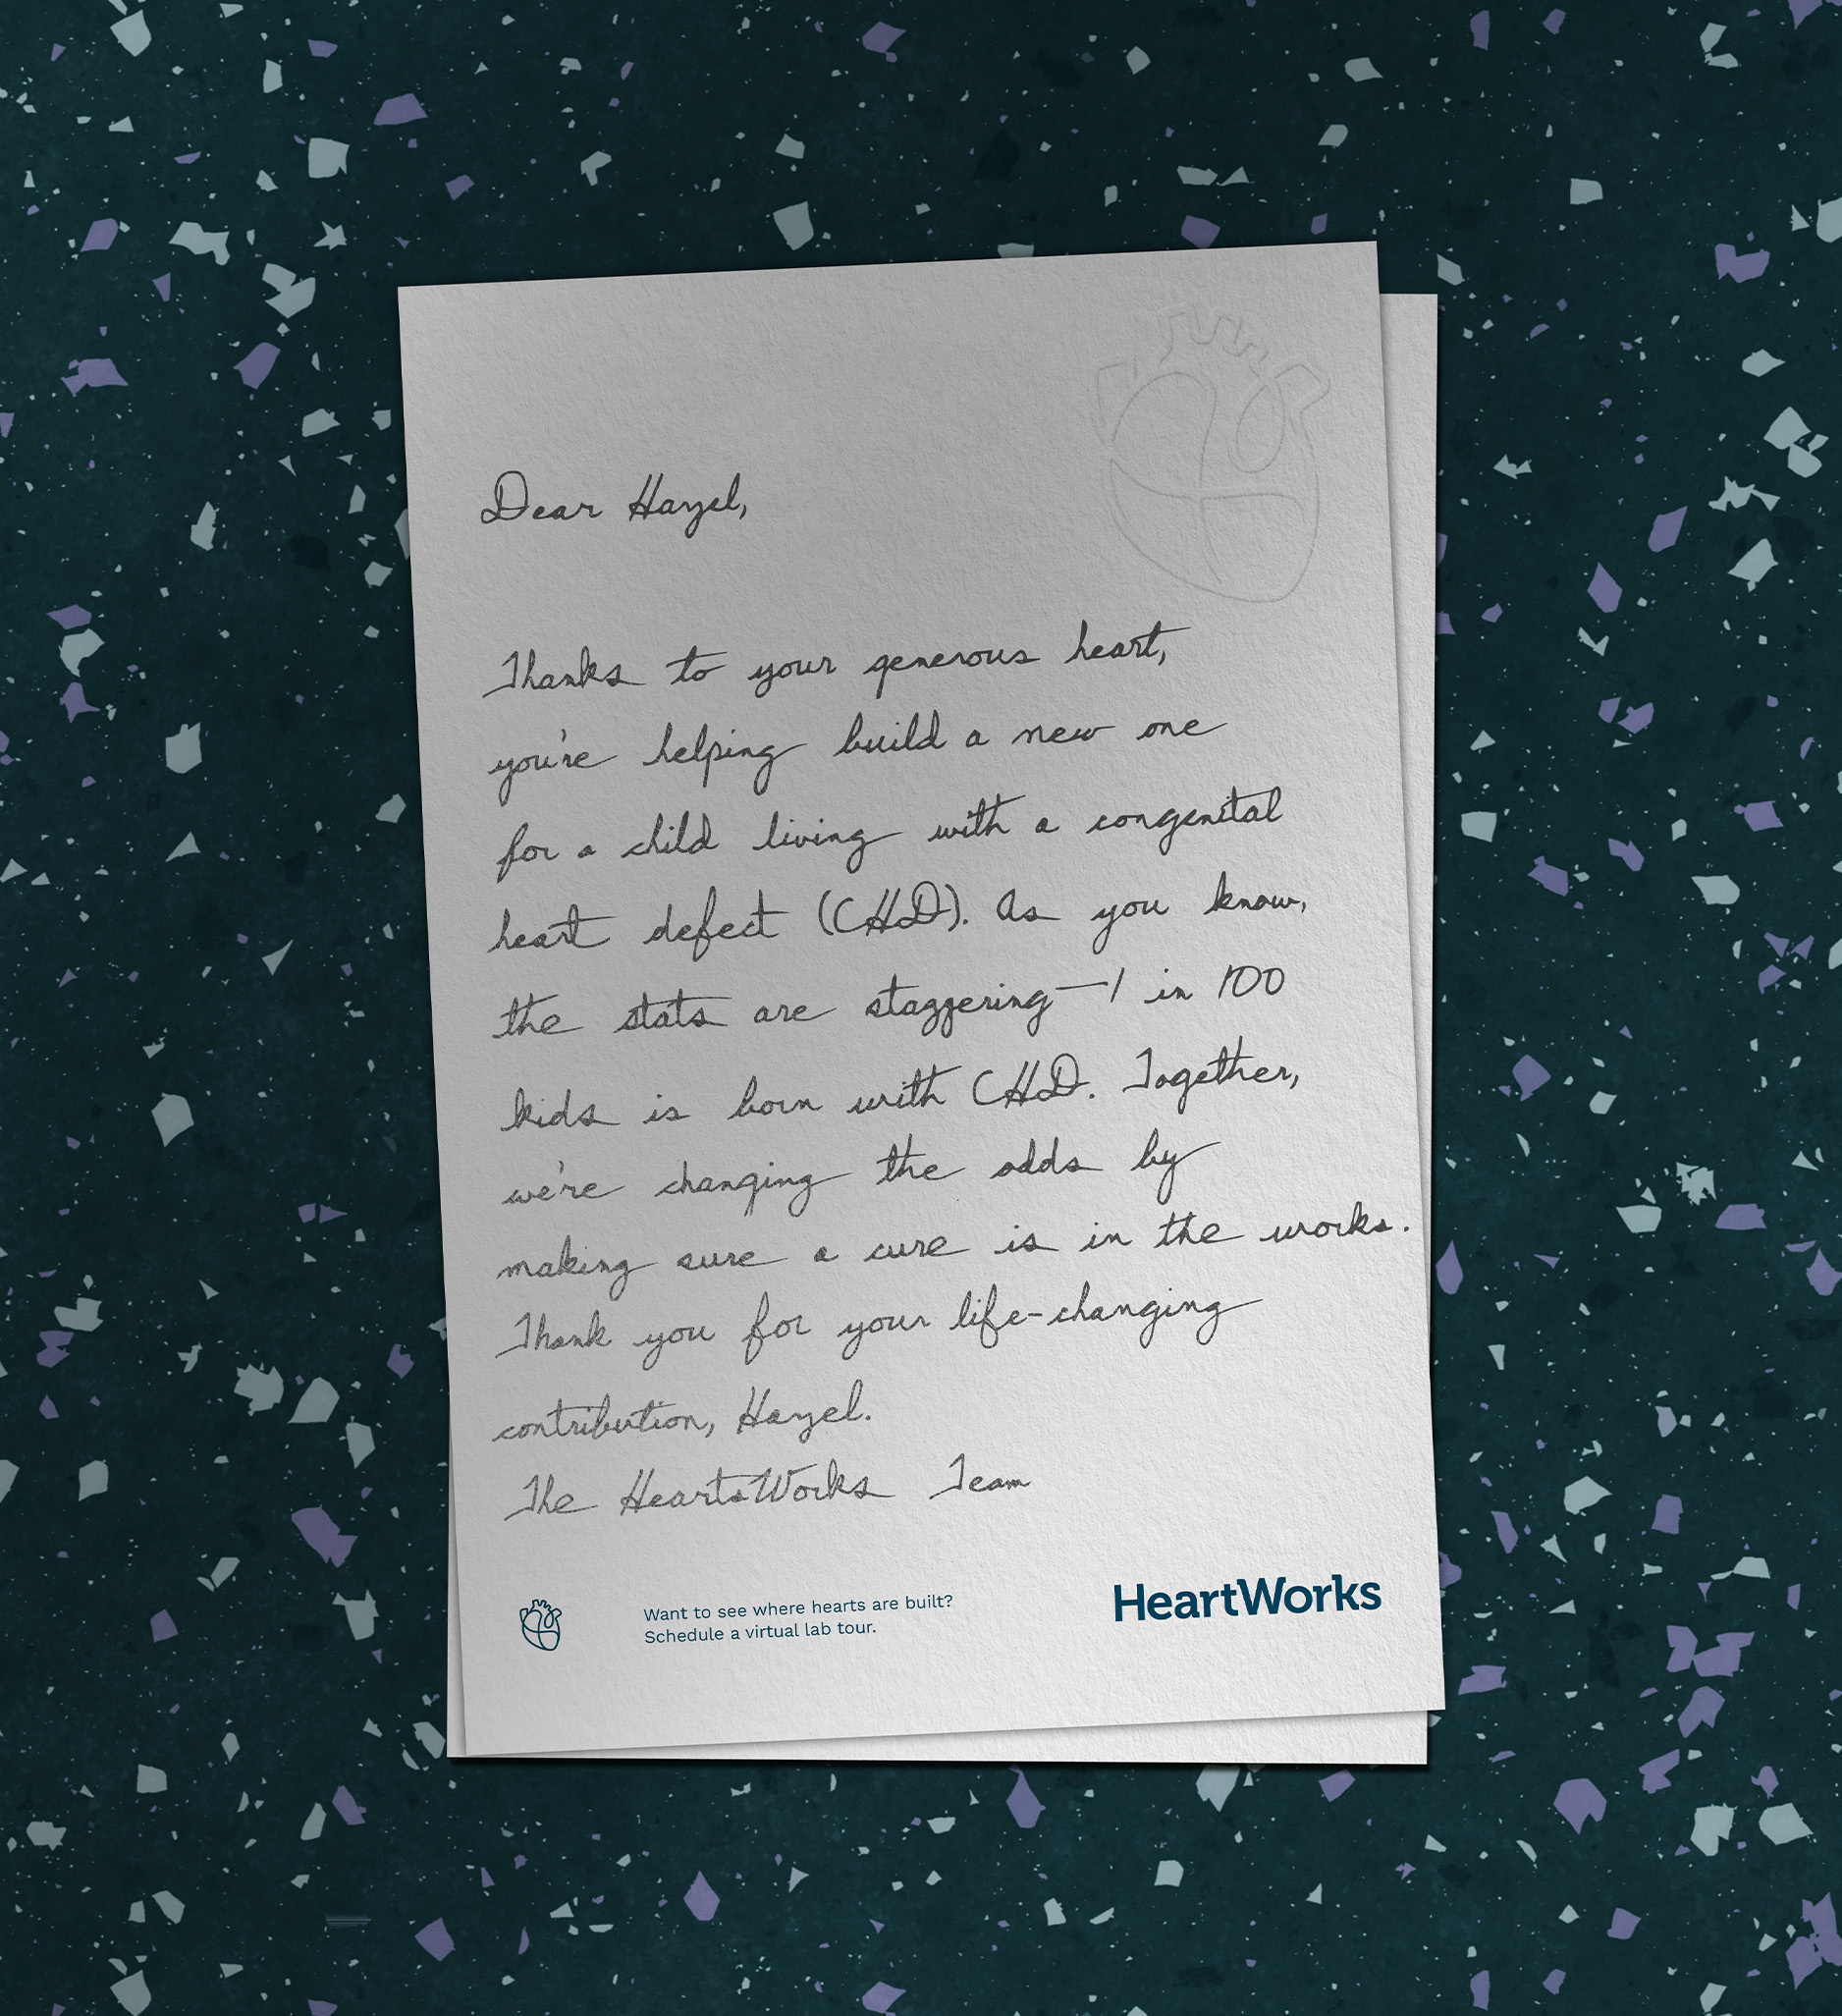 Dear Hazel,
Thanks to your generous heart,
you're helping build a new one
for a child living with a congenital
heart defect (CHD). As you know,
the stats are staggering—1 in 100
kids is born with CHD. Together,
we're changing the odds by
making sure a cure is in the works.
Thank you for your life-changing
contribution, Hazel.
The HeartsWorks Team
Want to see where hearts are built?
Schedule a virtual lab tour.
HeartWorks